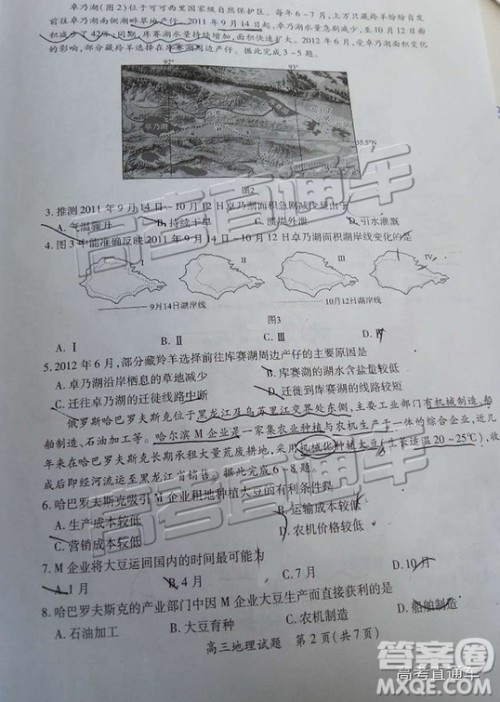 卓乃湖(图2)位于可可西里国家级自然保护区。每年6-7月，上万只藏羚羊纷纷自发
前往卓乃湖南侧湖畔草地产仔。2011年9月14日起，卓乃湖水量急剧减少，至10月12日面
积减少了42%。同期，库赛湖水量持续增加，面积快速扩大。2012年6月，受卓乃湖面积变化
的影响，部分藏羚羊选择在库赛湖周边产仔。据此完成3~5题。
92° 93°
卓乃湖
35.5°N
92° 93°
图2
3.推测2011年9月14日-10月12日卓乃湖面积急剧减少缘由于
A.气温骤升 B.持续干旱 C.溃堤外泄 D.引水灌溉
4.图3中能准确反映2011年9月14日-10月12日卓乃湖面积湖岸线变化的是
I II III IV
9月14日湖岸线 10月12日湖岸线
图3
A.I B.II C.III D.IV
5.2012年6月，部分藏羚羊选择前往库赛湖周边产仔的主要原因是
A.卓乃湖沿岸栖息的草地减少 B.库赛湖的湖水含盐量较低
C.迁往卓乃湖的迁徙线路中断 D.迁徙到库赛湖的线路较短
俄罗斯哈巴罗夫斯克位于黑龙江及乌苏里江交界处东侧，主要工业部门有机械制造，船
舶制造，石油加工等。哈尔滨M企业是一家集农业种植与农机生产于一体的综合企业，近
年来在哈巴罗夫斯克承租大量荒废耕地，采用机械化种植大豆(生长适温20~25℃)，收
成后即经河流运至黑龙江省销售。据此完成6~8题。
6.哈巴罗夫斯克吸引M企业租地种植大豆的有利条件是
A.生产成本较低 B.运输成本较低
C.营销成本较低 D.农机价格较低
7.M企业将大豆运回国内的时间最可能为
A.1月 B.4月 C.7月 D.10月
8.哈巴罗夫斯克的产业部门中因M企业大豆生产而直接获利的是
A.石油加工 B.大豆育种 C.农机制造 D.船舶制造
高三地理试题 第2页(共7页)
高考直通车
高考直通车
高考直通车
答案圈
MXQE.COM